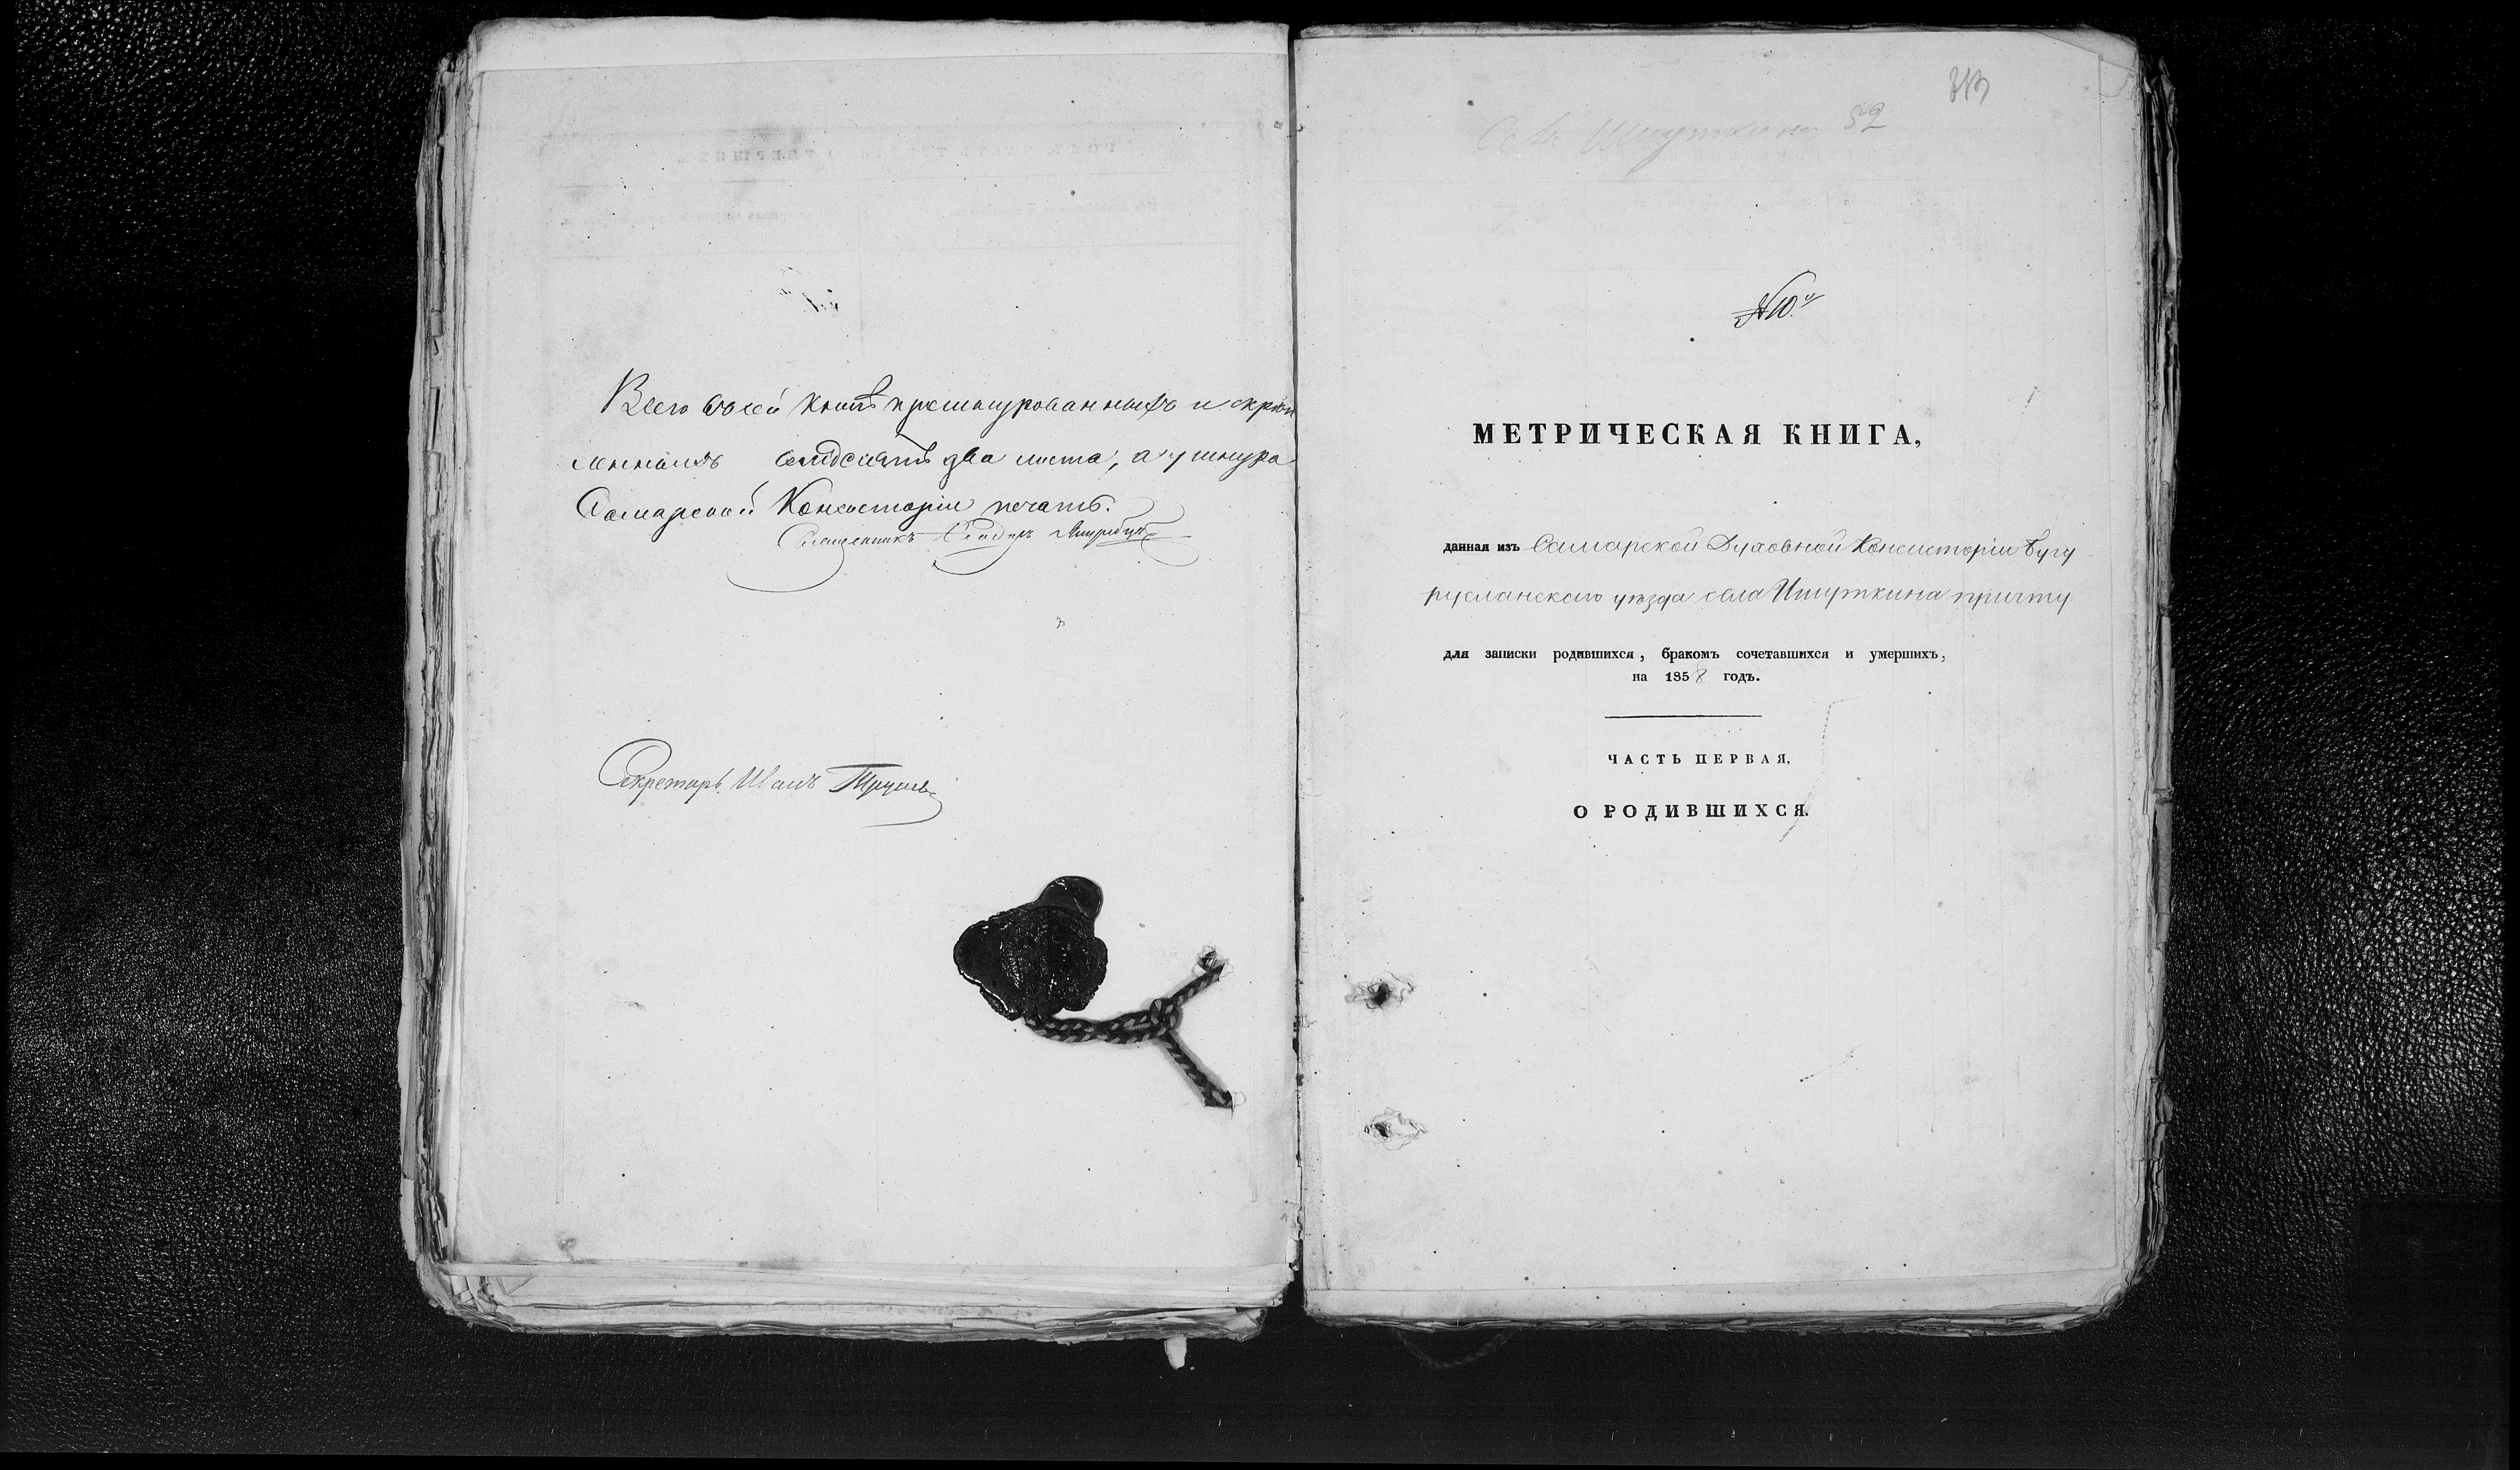 Всего въ сей книгѣ прошнурованныхъ и скрѣп
ленныхъ семдесятъ два листа, а у шнура
Самарской Консисторіи печать.
Священникъ
Секретарь Иванъ
52
№ 10й
МЕТРИЧЕСКАЯ КНИГА,
данная изъ Самарской Духовной Консисторіи Бугу
русланскаго уѣзда села Ишуткина причту
для записки родившихся, бракомъ сочетавшихся и умершихъ,
на 1858 годъ.
ЧАСТЬ ПЕРВАЯ,
О РОДИВШИХСЯ.